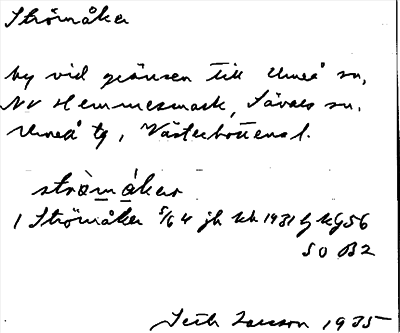 Strömåker
by vid gränsen till Umeå sn,
NV Hemmesmark, Sävars sn.
Umeå tg, Västerbottens l.
stròmåker
1 Strömåker 5/6 4 jb kh 1931 hj kg 56
SO B2
Seth Larsson 1935